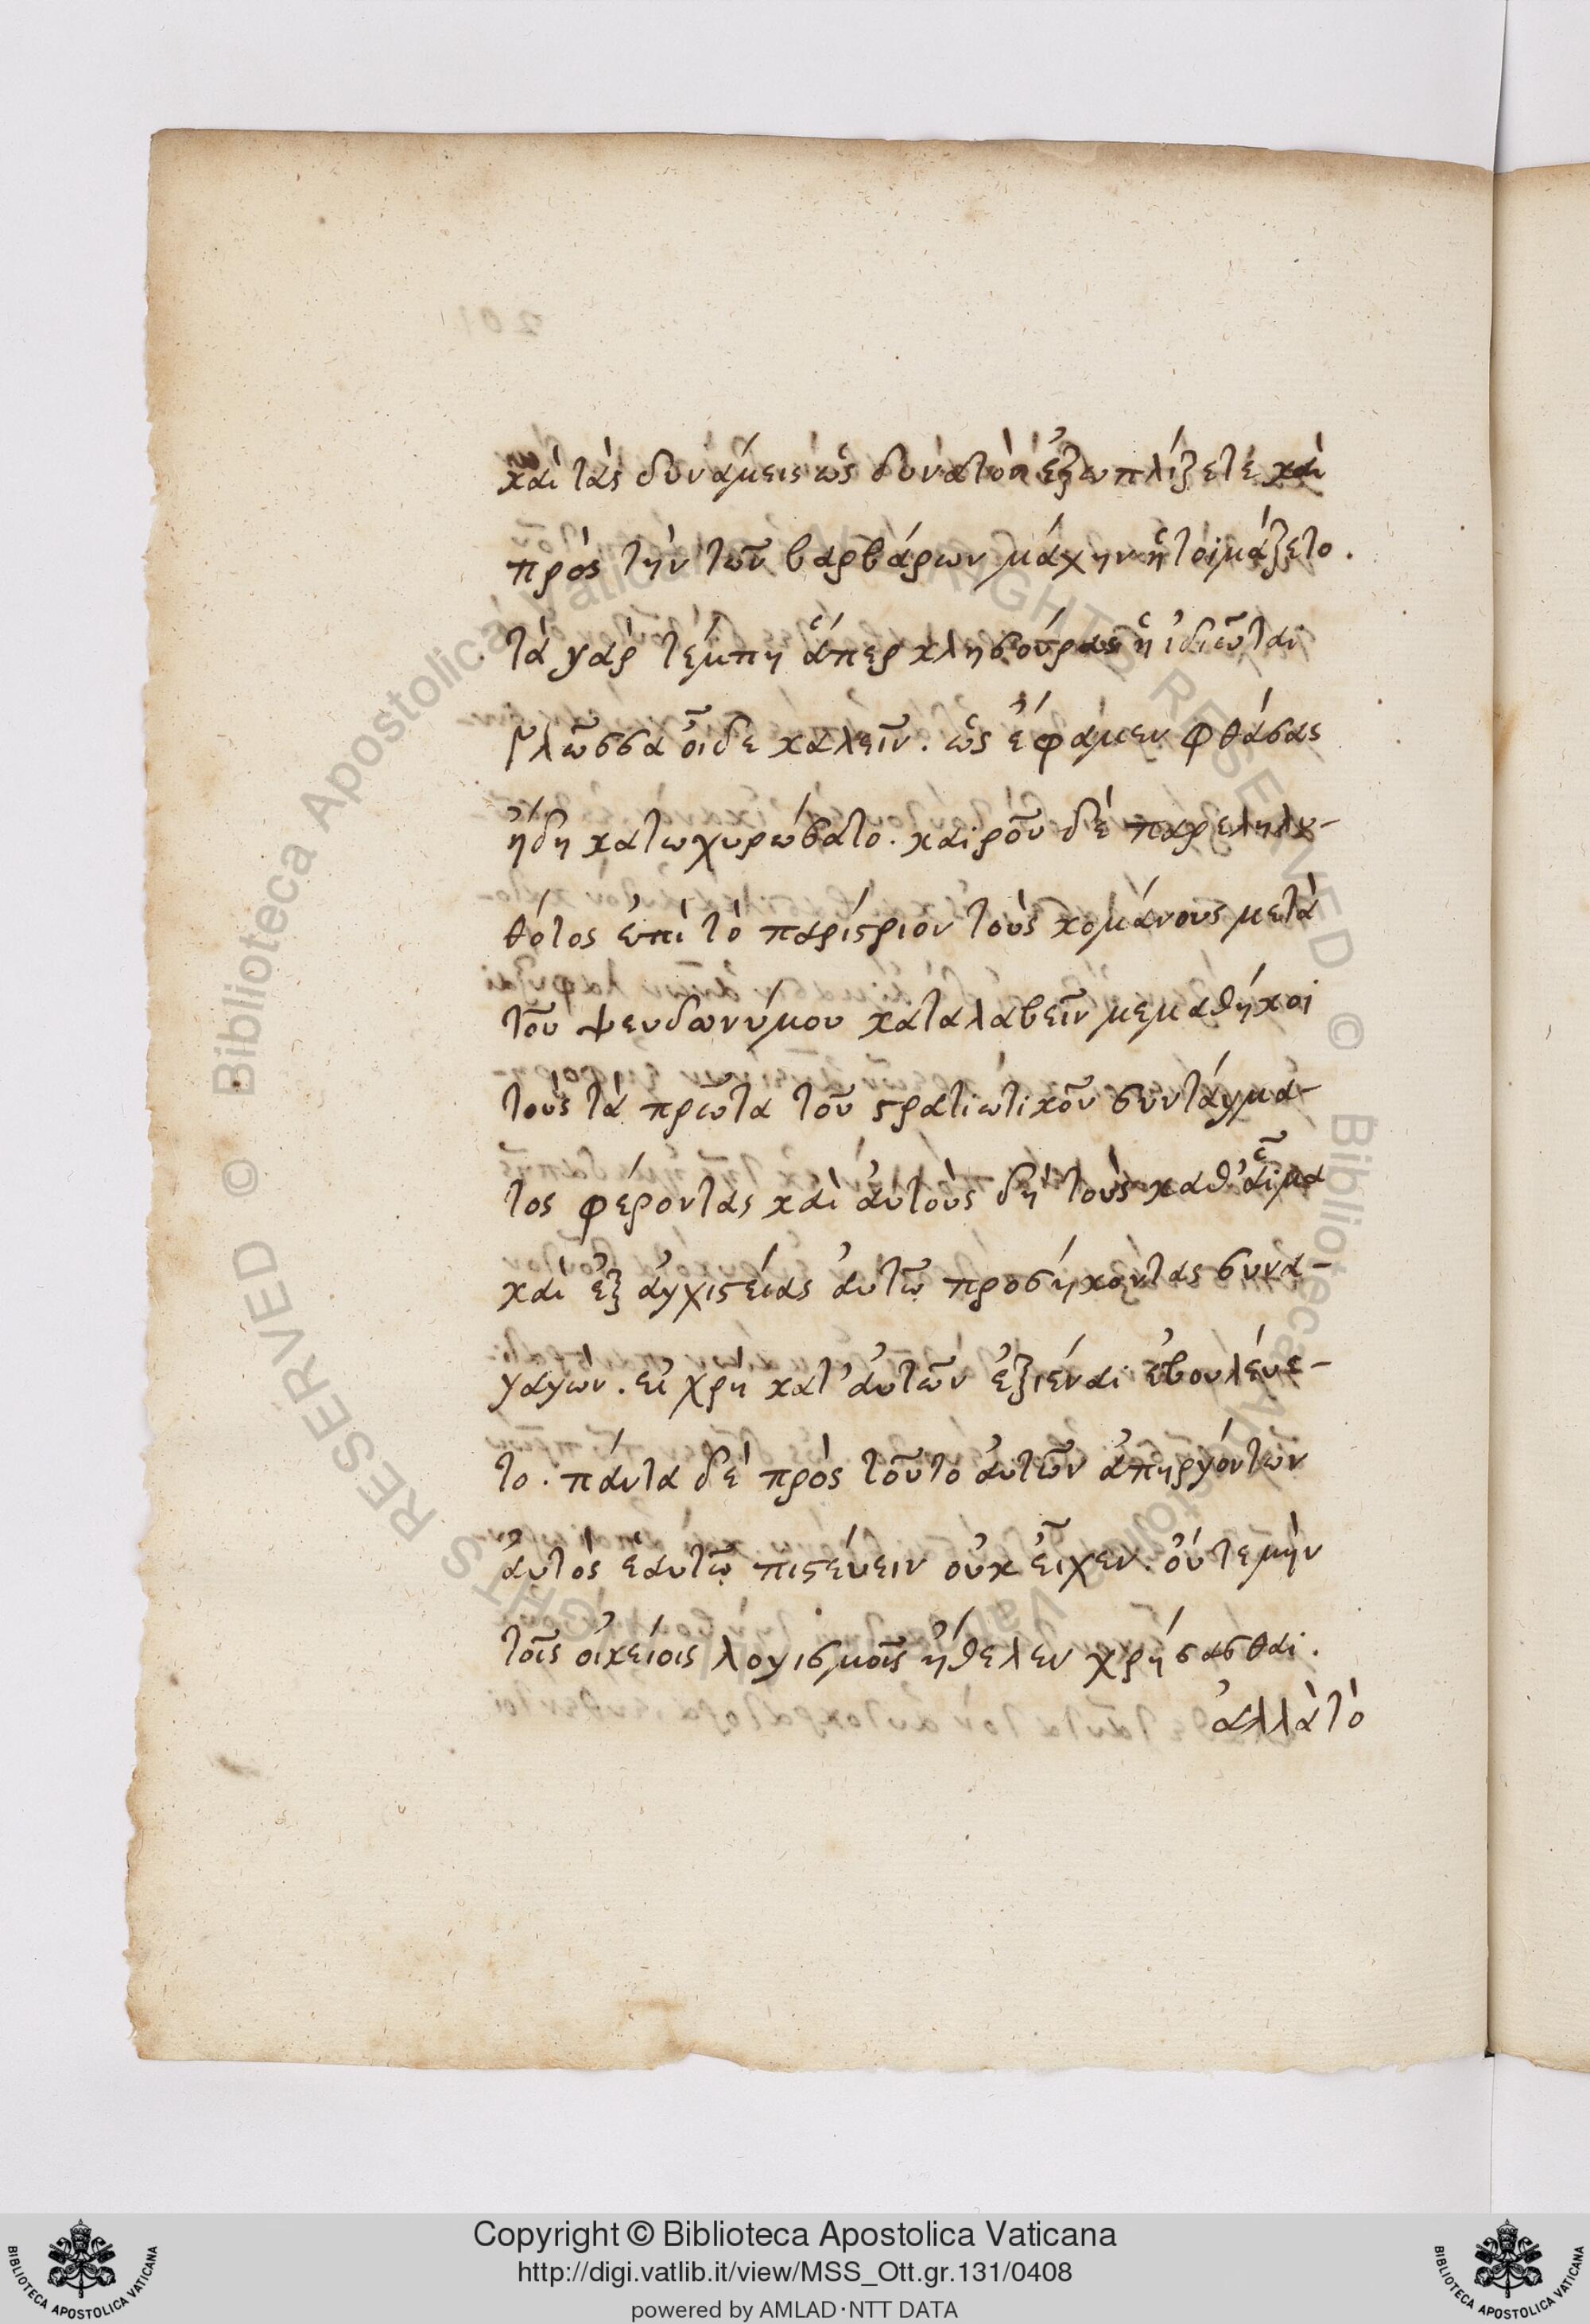 καὶ τὰς δυνάμεις ὡς δυνατὸν ἐξωπλίζετέ καὶ
πρὸς τὴν τῶν βαρβάρων μάχην ἡτοιμάζετο.
τὰ γὰρ τέμπη ἅπερ κλησούρας ἡ ἰδιῶται
γλῶσσα οἶδε καλεῖν. ὡς ἔφαμεν φθάσας
ἤδη κατωχυρώσατο. καιροῦ δὲ παρεληλυ-
θότος ἐπὶ τὸ παρίστριον τοὺς κομάνους μετὰ
τοῦ ψευδωνύμου καταλαβεῖν μεμαθήκοι
τοὺς τὰ πρῶτα τοῦ στρατιωτικοῦ συντάγμα-
τος φέροντας καὶ αὐτοὺς δὴ τοὺς καθ' αἷμα
καὶ ἐξ ἀγχιστείας αὐτῷ προσήκοντας συνα-
γαγὼν. εἰ χρὴ κατ' αὐτῶν ἐξιέναι ἐβουλέυε-
το. πάντα δὲ πρὸς τοῦτο αὐτῶν ἀπηργόντων
ἀυτὸς ἑαυτῷ πιστέυειν οὐκ εἶχεν. ὀύτε μὴν
τοῖς οἰκείοις λογισμοῖς ἤθελεν χρήσασθαι.
ἀλλὰ τὸ
Copyright © Biblioteca Apostolica Vaticana
http://digi.vatlib.it/view/MSS_Ott.gr.131/0408
powered by AMLAD·NTT DATA
BIBLIOTECA APOSTOLICA VATICANA
BIBLIOTECA APOSTOLICA VATICANA